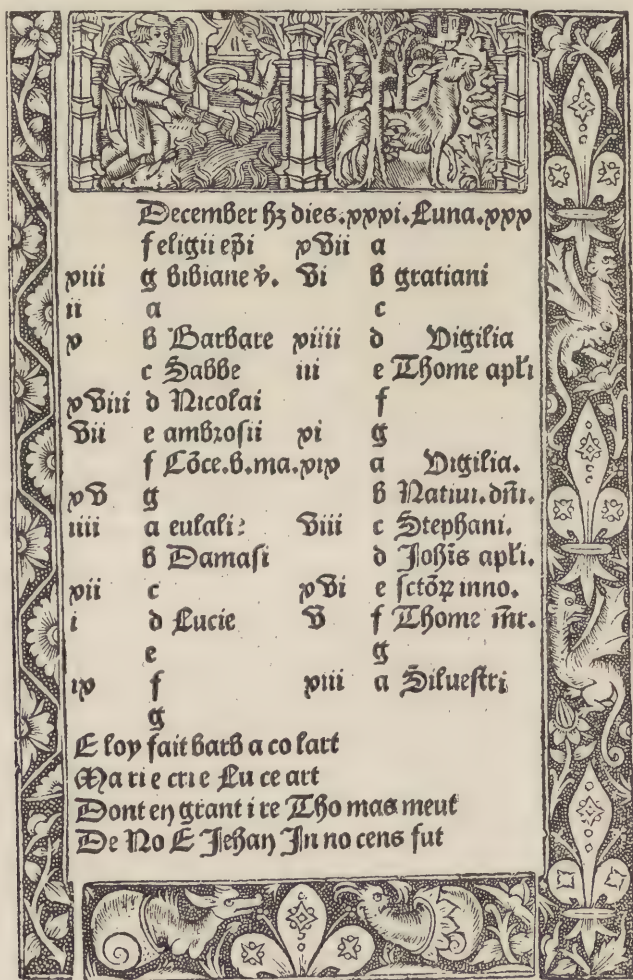 December hꝫ dies.xxxi.Luna.xxx
f eligii ep̄i
xiii g bibiane v̄.
ii a
x b Barbare
c Sabbe
xviii d Nicolai
vii e ambrosii
f Cōce.b.ma.
xv g
iiii a eulali?
b Damasi
xii c
i d Lucie
e
ix f
g
xvii a
vi b gratiani
c
xiiii d Vigilia
iii e Thome apl̄i
f
xi g
xix a Vigilia.
b Natiui.dn̄i.
viii c Stephani.
d Joh̄is apl̄i.
xvi e sctōꝝ inno.
v f Thome mr̄.
g
xiii a Siluestri
E loy fait barb a co lart
Ma ri e crie Lu ce art
Dont en grant i re Tho mas meut
De No E Jehan In no cens fut